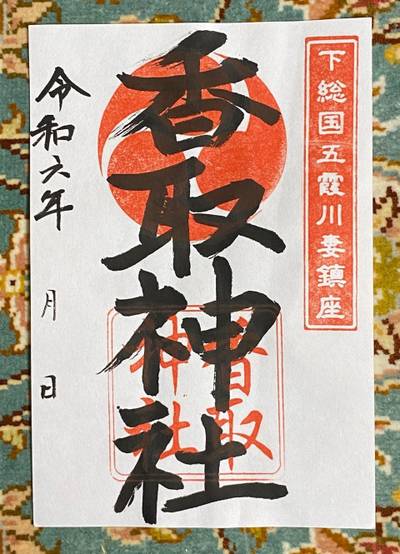 下総国五霞川妻鎮座
香取神社
香取
神社
令和六年 月 日